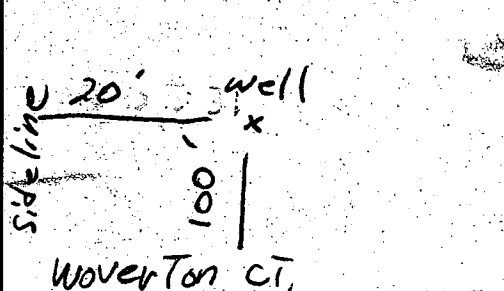 20' well
x
Sideline
100'
WoverTon CT.